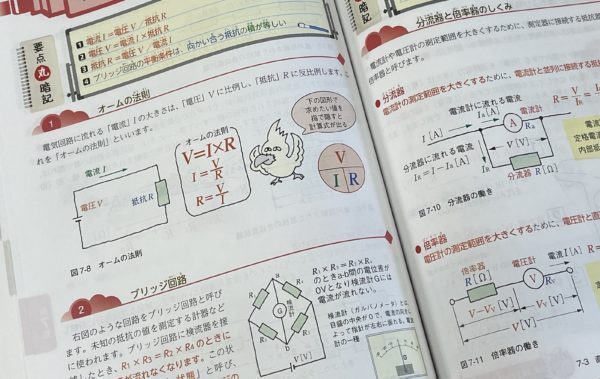 要点丸暗記
1 電流I=電圧V/抵抗R
2 電圧V=電流I×抵抗R
3 抵抗R=電圧V/電流I
4 ブリッジ回路の平衡条件は、向かい合う抵抗の積が等しい
1 オームの法則
電気回路に流れる「電流」Iの大きさは、「電圧」Vに比例し、「抵抗」Rに反比例します。こ
れを「オームの法則」といいます。
電流I
電圧V
抵抗R
図7-8 オームの法則
オームの法則
V=I×R
I=V/R
R=V/I
下の図形で
求めたい値を
指で隠すと
計算式が出る
V
I R
2 ブリッジ回路
右図のような回路をブリッジ回路と呼び
ます。未知の抵抗の値を測定する計器など
に使われます。ブリッジ回路に検流器を接
続したとき、R₁×R₃=R₂×R₄のときに
が流れなくなります。この状
状態」と呼び、
a
b
G
検流計
V[V]
のときa-b間の電位差が
0Vとなり検流計Gには
電流が流れない。
検流計(ガルバノメータ)とは、
目盛の中央が0で、電流の向きに
よって指針が左右に振れる、電
計の一種
G
暗記
分流器と倍率器のしくみ
電流計や電圧計の測定範囲を大きくするために、測定器に接続する抵抗
倍率器と呼びます。
分流器
電流計の測定範囲を大きくするために、電流計と並列に接続する抵抗
電流計に流れる電流
I[A]
電流計
A
分流器に流れる電流
分流器 R[Ω]
図7-10 分流器の働き
定格電
内部抵
倍率器
電圧計の測定範囲を大きくするために、電圧計と直
倍率器
R[Ω]
電圧計
V
電流I[A]
V[V]
図7-11 倍率器の働き
7-3